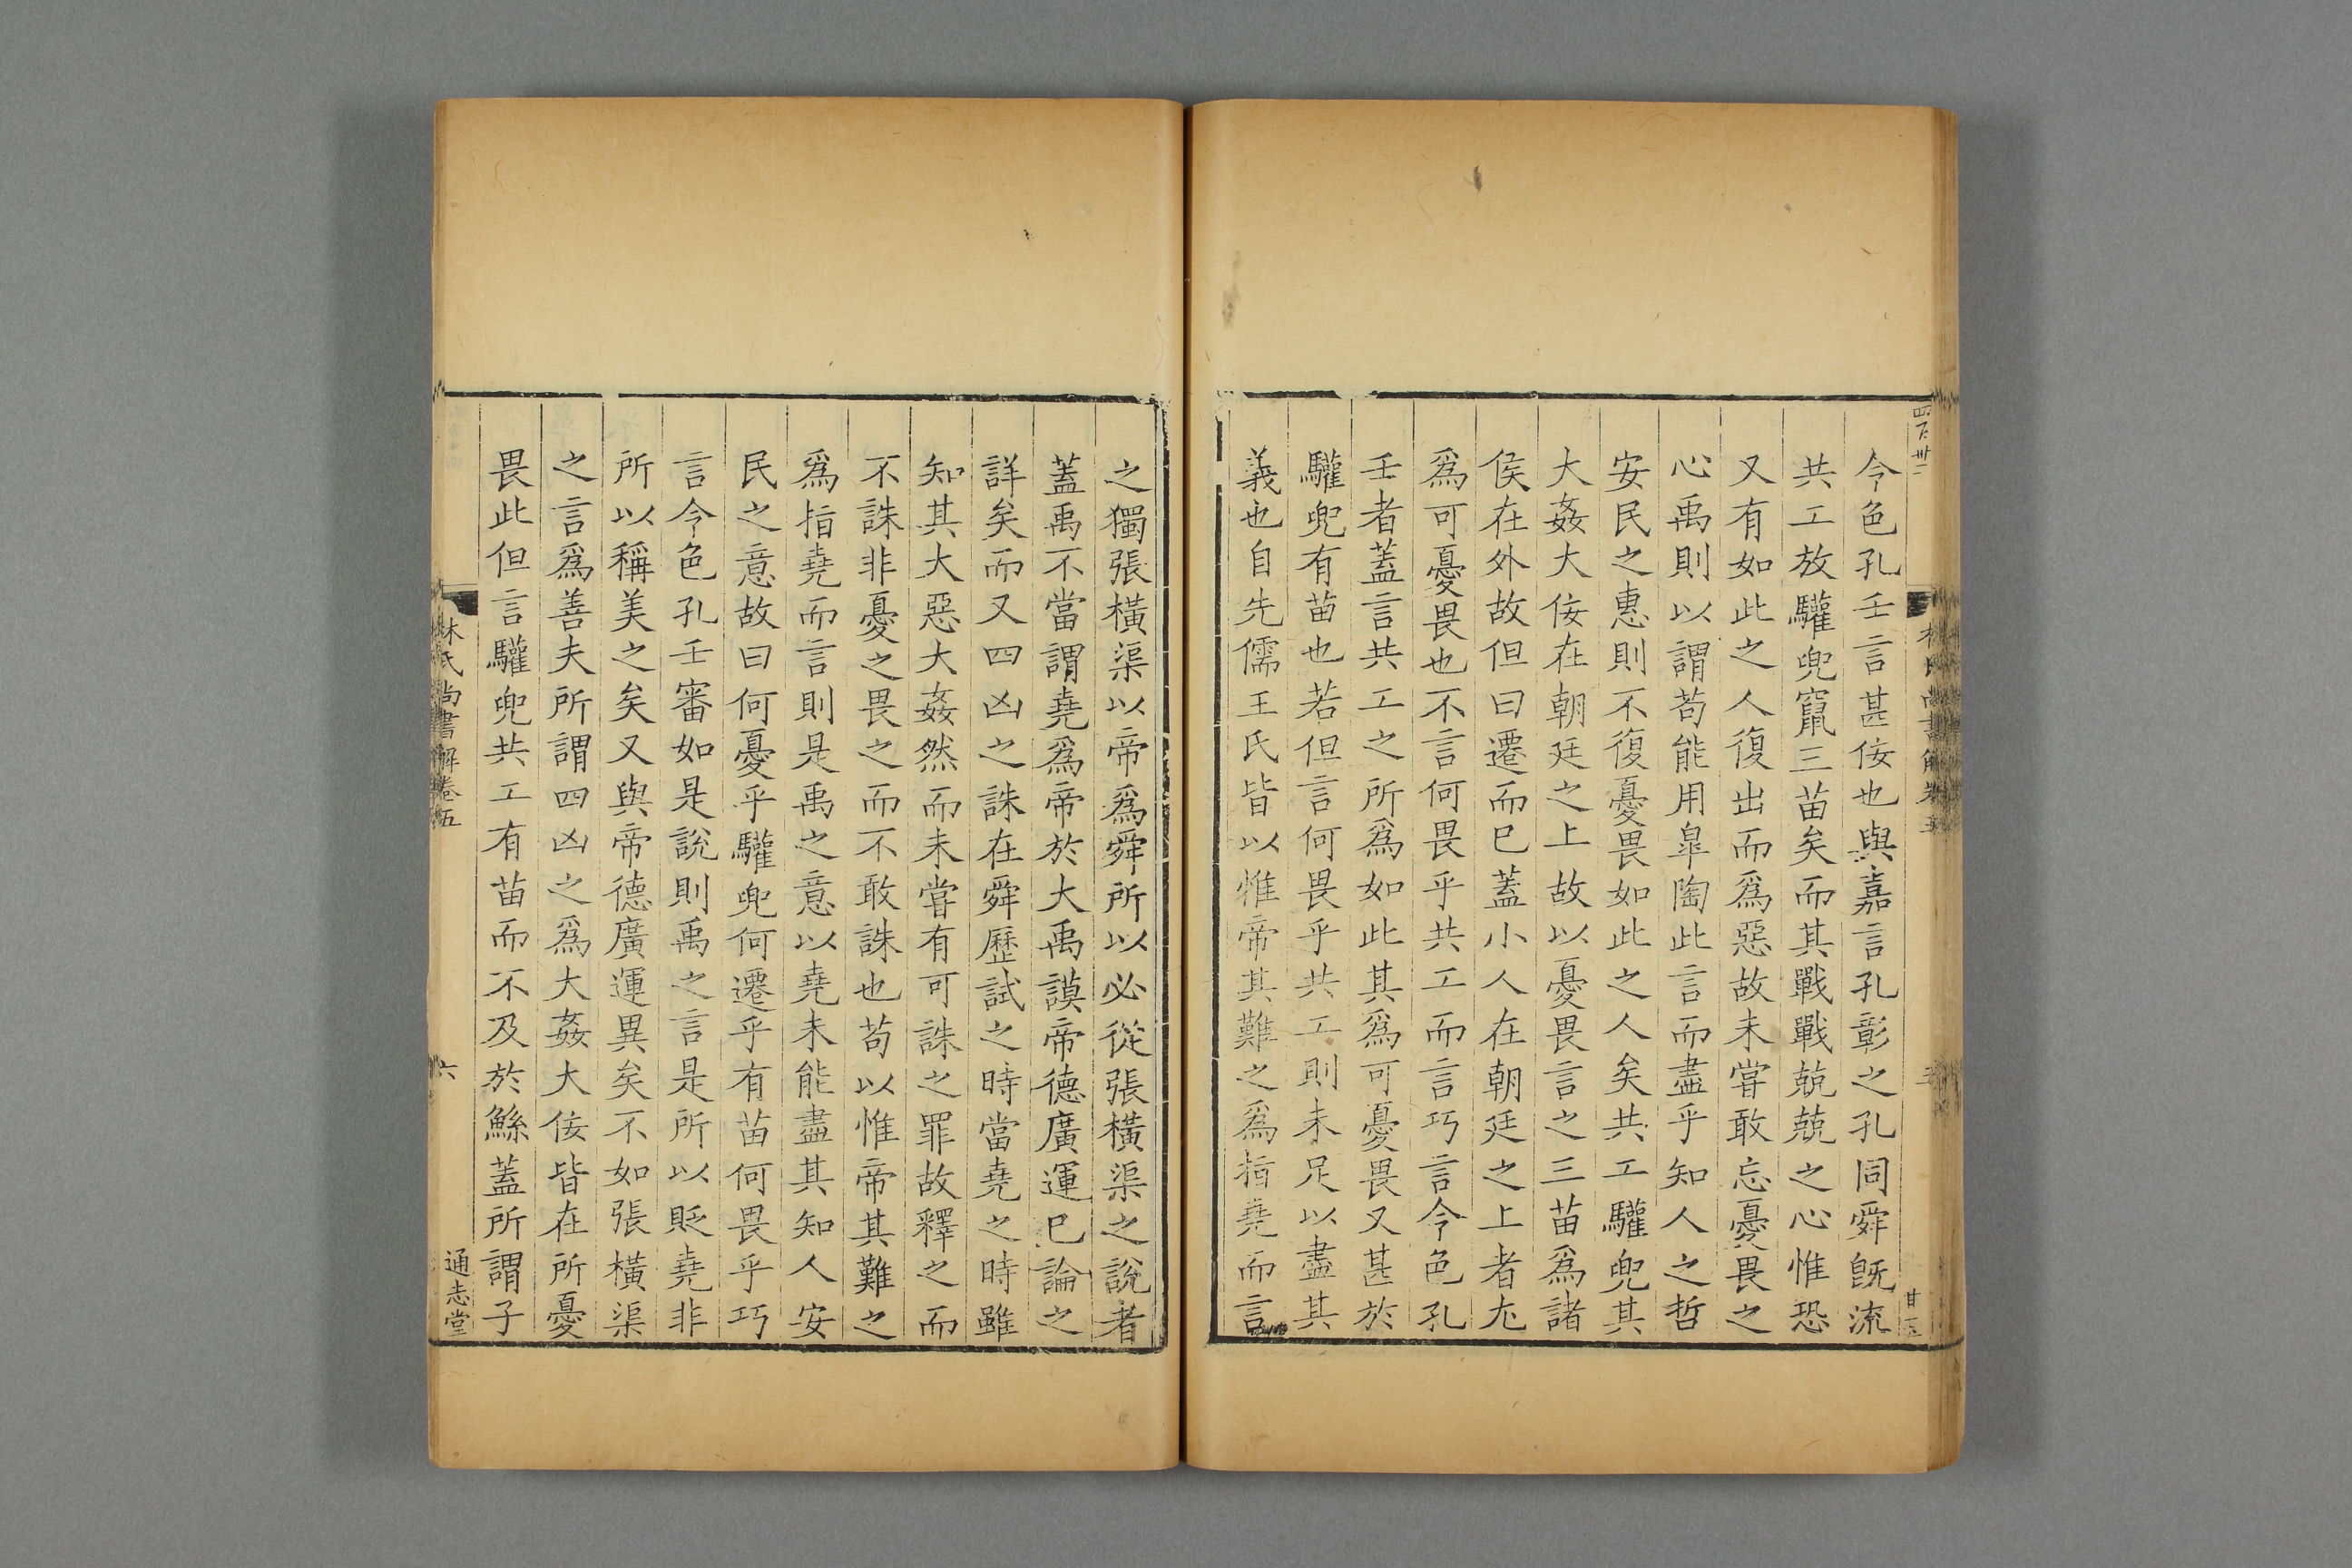 令色孔壬言甚佞也與嘉言孔彰之孔同舜旣流
共工放驩兜竄三苗矣而其戰戰兢兢之心惟恐
又有如此之人復出而爲惡故未嘗敢忘憂畏之
心禹則以謂苟能用皐陶此言而盡乎知人之哲
安民之惠則不復憂畏如此之人矣共工驩兜其
大姦大佞在朝廷之上故以憂畏言之三苗爲諸
侯在外故但曰遷而已蓋小人在朝廷之上者尤
爲可憂畏也不言何畏乎共工而言巧言令色孔
壬者蓋言共工之所爲如此其爲可憂畏又甚於
驩兜有苗也若但言何畏乎共工則未足以盡其
義也自先儒王氏皆以惟帝其難之爲指堯而言
之獨張橫渠以帝爲舜所以必從張橫渠之說者
蓋禹不當謂堯爲帝於大禹謨帝德廣運已論之
詳矣而又四凶之誅在舜歷試之時當堯之時雖
知其大惡大姦然而未嘗有可誅之罪故釋之而
不誅非憂之畏之而不敢誅也苟以惟帝其難之
爲指堯而言則是禹之意以堯未能盡其知人安
民之意故曰何憂乎驩兜何遷乎有苗何畏乎巧
言令色孔壬審如是說則禹之言是所以貶堯非
所以稱美之矣又與帝德廣運異矣不如張橫渠
之言爲善夫所謂四凶之爲大姦大佞皆在所憂
畏此但言驩兜共工有苗而不及於鯀蓋所謂子
林氏尚書解卷五
六
通志堂